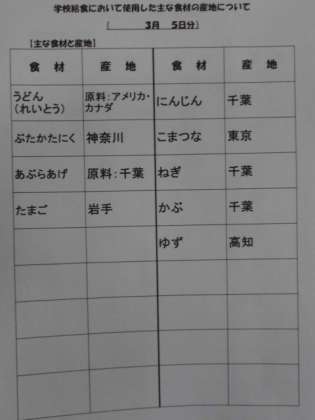 学校給食において使用した主な食材の産地について
(　3月　5日分)
【主な食材と産地】
食　材　産　地　食　材　産　地
うどん
(れいとう)　原料:アメリカ・
カナダ　にんじん　千葉
ぶたかたにく　神奈川　こまつな　東京
あぶらあげ　原料:千葉　ねぎ　千葉
たまご　岩手　かぶ　千葉
ゆず　高知